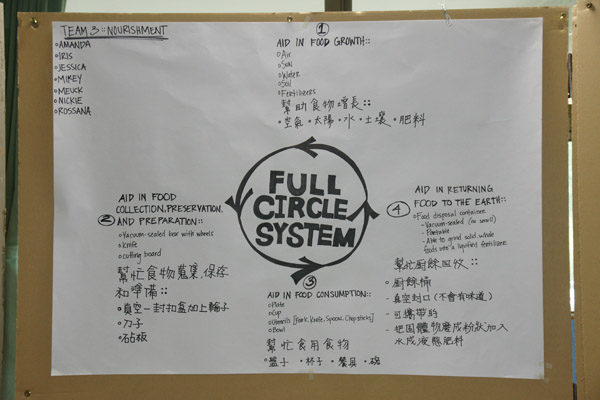 TEAM 3 :: NOURISHMENT
○AMANDA
○IRIS
○JESSICA
○MIKEY
○MEUCK
○NICKIE
○ROSSANA
①
AID IN FOOD GROWTH::
○Air
○Sun
○Water
○Soil
○Fertilizers
幫助食物增長::
•空氣 •太陽 •水 •土壤 •肥料
FULL
CIRCLE
SYSTEM
②
AID IN FOOD
COLLECTION, PRESERVATION,
AND PREPARATION::
○Vacuum-sealed box with wheels
○Knife
○Cutting board
幫忙食物蒐集,保存
和準備::
•真空-封扣盒加上輪子
•刀子
•砧板
③
AID IN FOOD CONSUMPTION::
○Plate
○Cup
○Utensils [Fork, Knife, Spoon, Chopsticks]
○Bowl
幫忙食用食物
•盤子 •杯子 •餐具 •碗
④
AID IN RETURNING
FOOD TO THE EARTH::
○Food disposal container
-Vacuum-sealed (no smell)
-Portable
-Able to grind solid, whole
foods into a liquified fertilizer
幫忙廚餘回收::
•廚餘桶
-真空封口(不會有味道)
-可攜帶的
-把固體物磨成粉狀加入
水成液態肥料